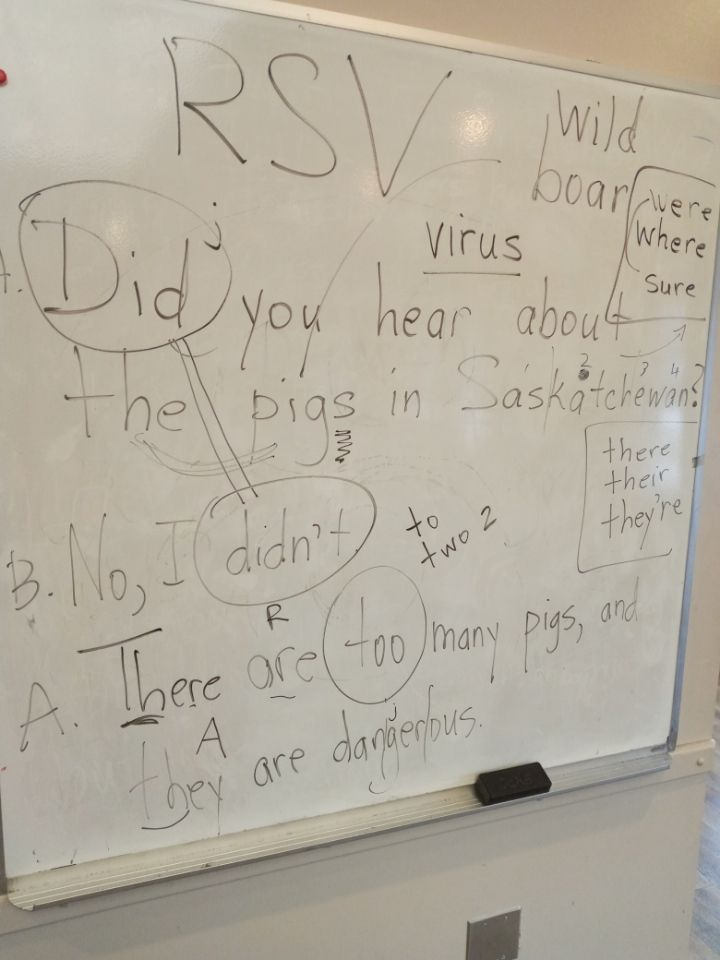 RSV
Wild
boar
were
where
sure
virus
j
A. Did you hear about
2 3 4
the pigs in Saskatchewan?
there
their
they're
B. No, I didn't
to
two 2
R
A. There are too many pigs, and
A
j
they are dangerous.